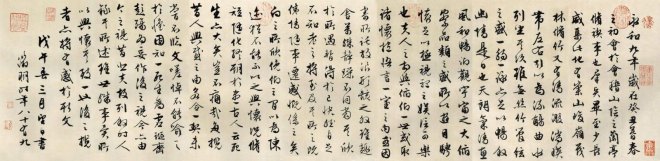 永和九年歲在癸丑暮春
之初會于會稽山陰之蘭亭
脩禊事也羣賢畢至少長
咸集此地有崇山峻領茂
林脩竹又有清流激湍映
帶左右引以為流觴曲水
列坐其次雖無絲竹管弦
之盛一觴一詠亦足以暢敘
幽情是日也天朗氣清惠
風和暢仰觀宇宙之大俯
察品類之盛所以遊目騁
懷足以極視聽之娛信可樂
也夫人之相與俯仰一世或取
諸懷抱悟言一室之內或因
寄所託放浪形骸之外雖趣
舍萬殊靜躁不同當其欣
於所遇暫得於己快然自足
不知老之將至及其所之既
惓情隨事遷感慨係之矣
向之所欣俛仰之間以為陳
迹猶不能不以之興懷況脩
短隨化終期於盡古人云死
生亦大矣豈不痛哉每攬
昔人興感之由若合一契未
嘗不臨文嗟悼不能喻之
於懷固知一死生為虛誕齊
彭殤為妄作後之視今亦由
今之視昔悲夫故列敘時人
錄其所述雖世殊事異所
以興懷其致一也後之攬
者亦將有感於斯文
戊午春三月望日書
徵明時年八十有九